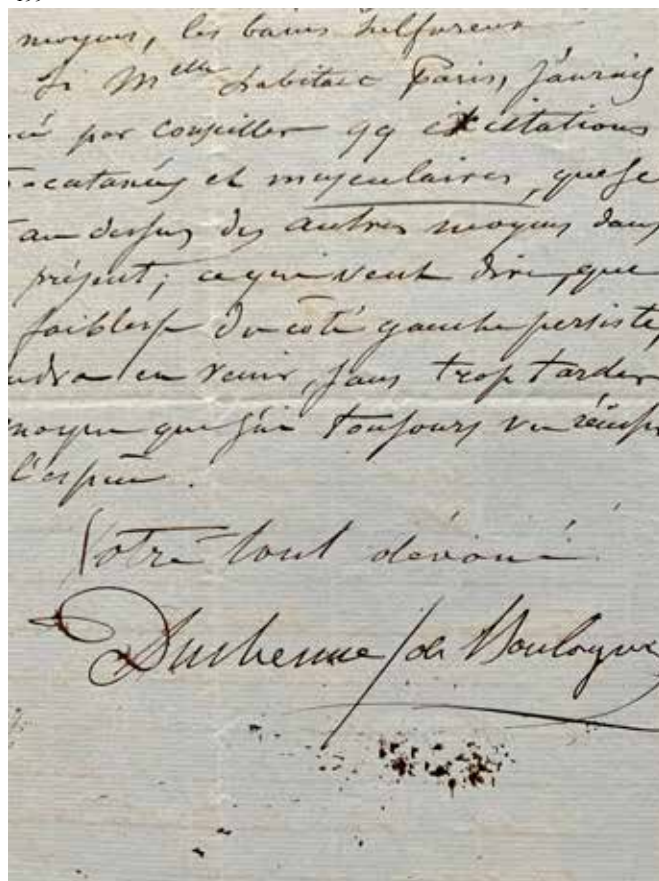 moyens, les bains sulfureux
Si Melle habitait Paris, j'aurais
par conseiller qq excitations
-cutanées et musculaires, que je
au dessus des autres moyens dans
présent; ce qui veut dire, que
faiblesse du côté gauche persiste,
en venir, sans trop tarder
moyen que j'ai toujours vu réussir
l'espèce.
Votre tout dévoué
Duchenne (de Boulogne